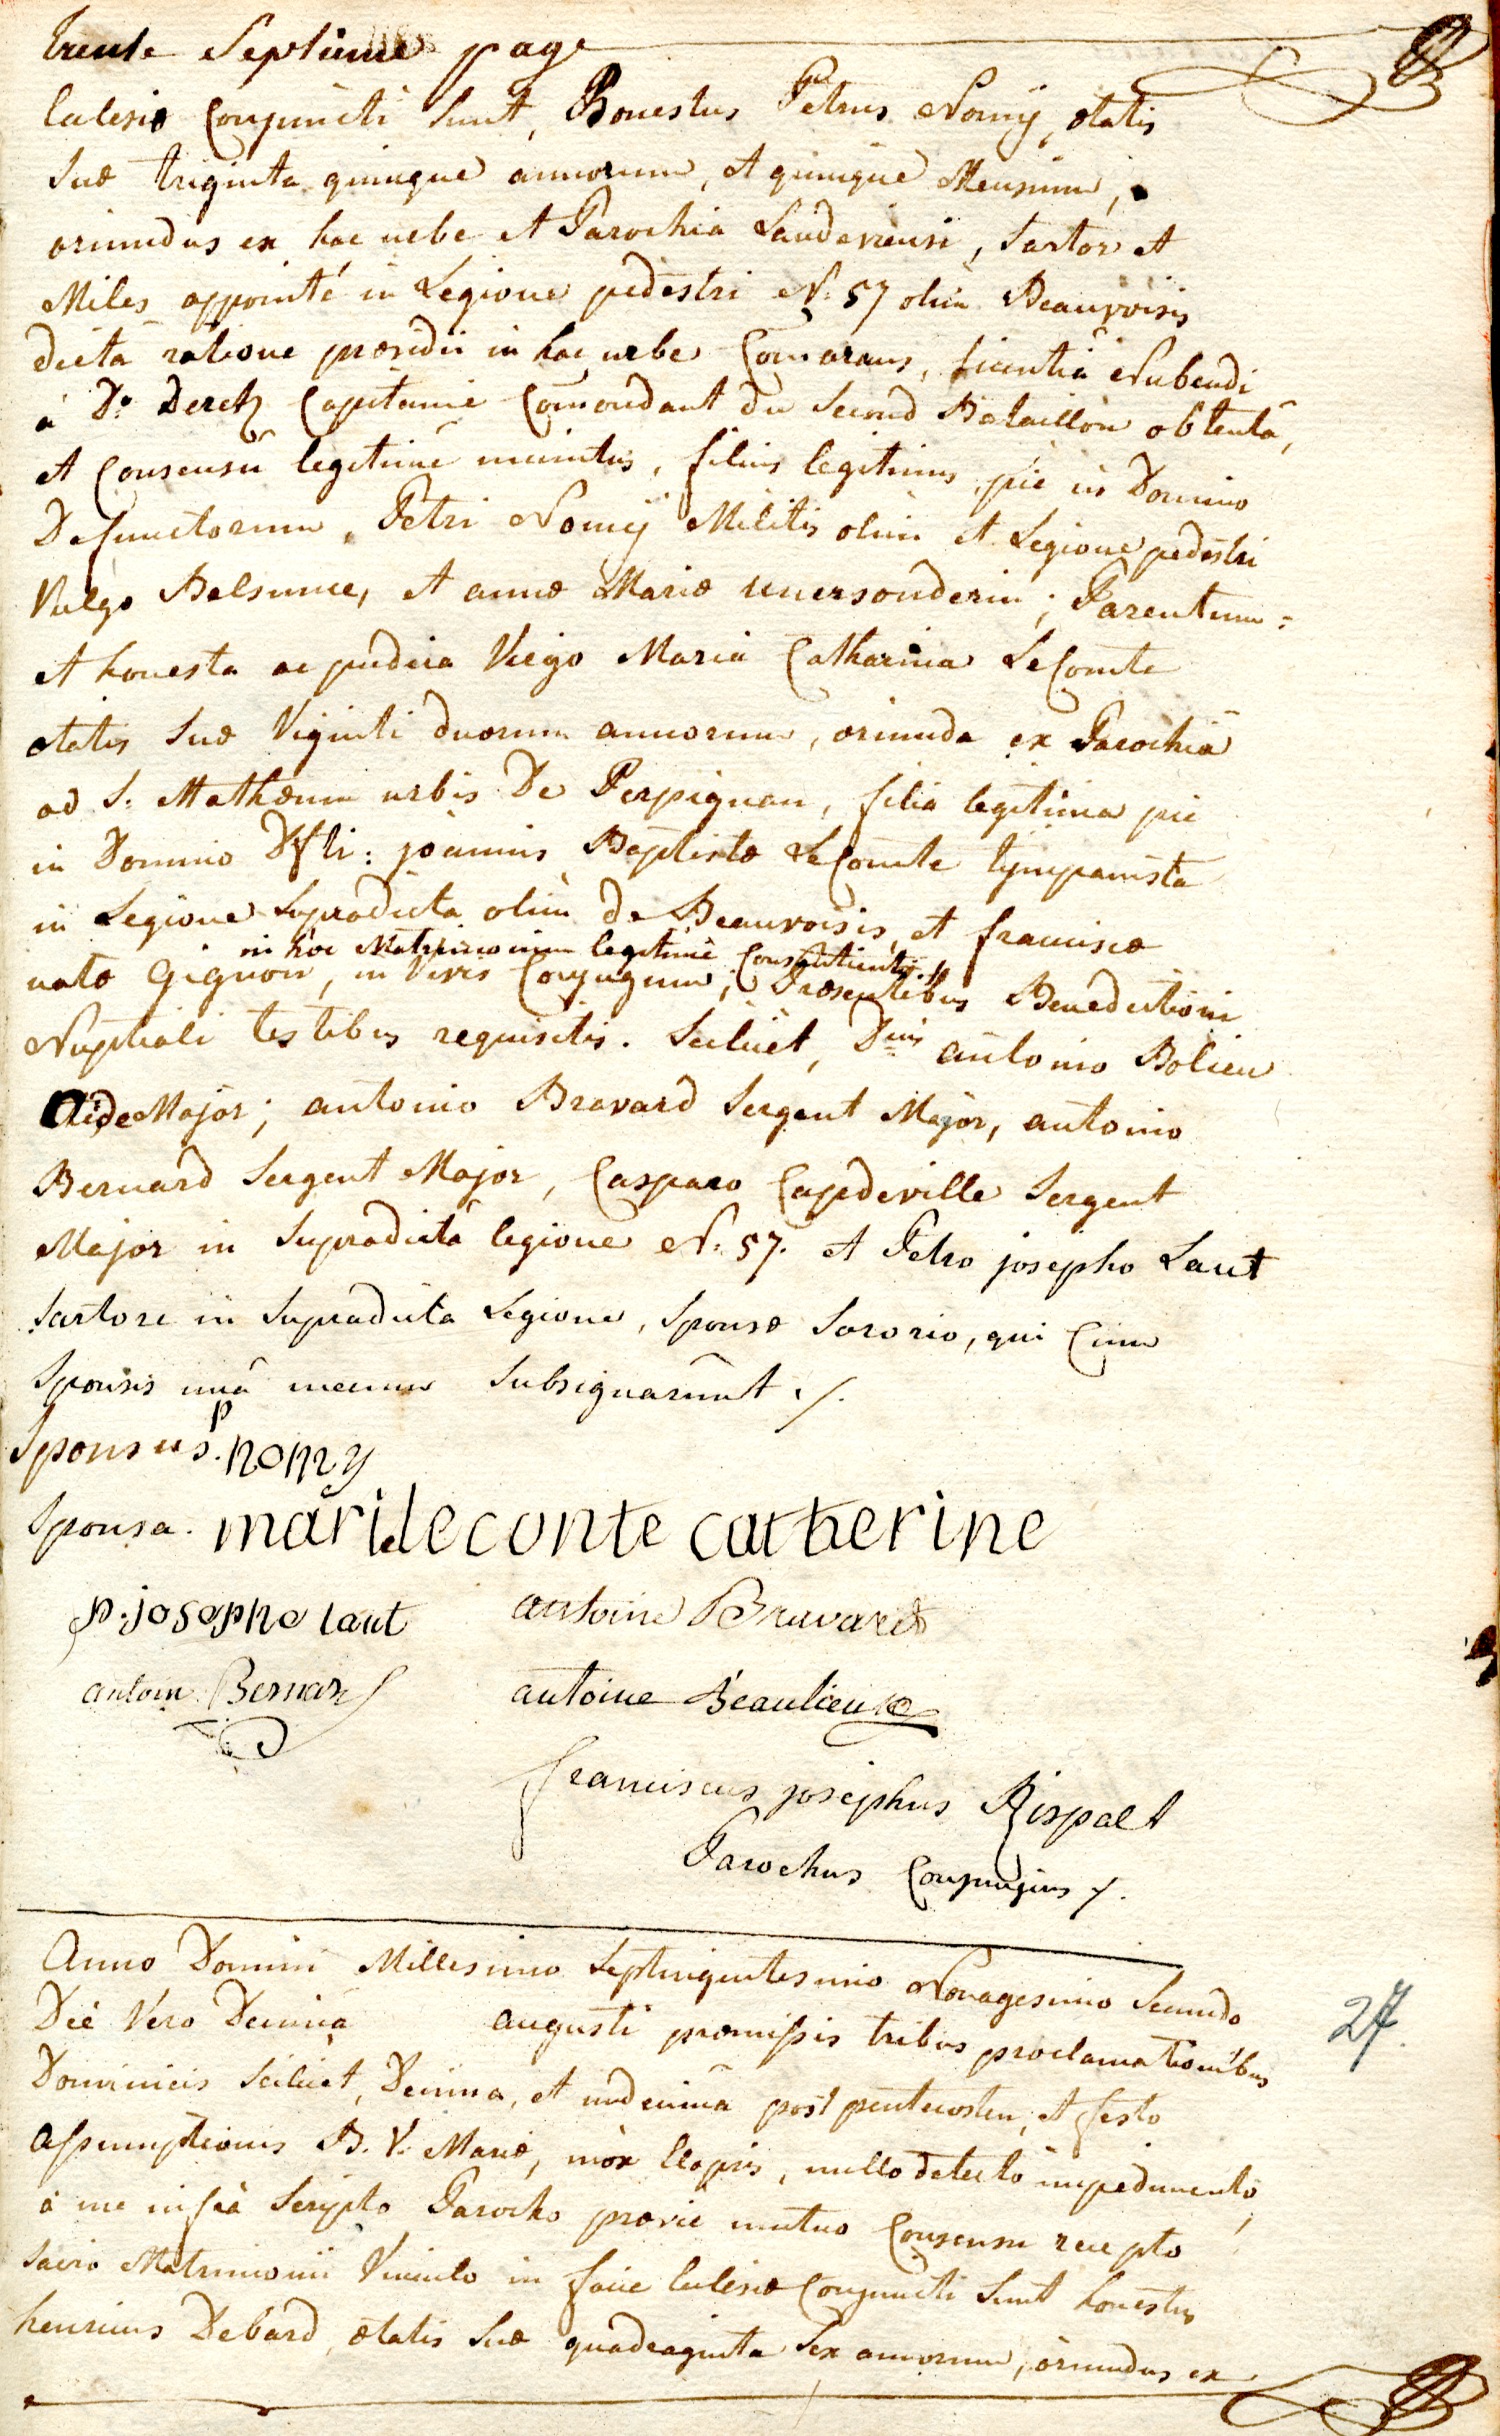 trente Septieme page
Eclesiæ Conjuncti Sunt, Honestus Petrus Nomij, ætatis
Suæ triginta quinque annorum, et quinque Mensium,
oriundus ex hac urbe et Parochia Landaviensi, Sartor et
Miles appointé in Legione pedestri N: 57 olim Beauvoisis
dicta ratione præsidii in hac urbe Comorans, licentiâ Nubendi
à D: Derch Capitaine Comandant du Second Bataillon obtentâ,
et Consensû legitimè munitus, filius legitimus, piè in Domino
Defunctorum, Petri Nomij Militis olim et Legione pedestri
Vulgo Belsunce, et annæ Mariæ unersonderin; Parentum:
et honesta ac pudica Virgo Maria Catharina LeComte
ætatis Suæ Viginti duorum annorum, oriunda ex Parochiâ
ad S: Mathæum urbis De Perpignan, filia legitima pie
in Domino Dfti: joannis Baptistæ LeComte tympanista
in Legione Supradicta olim de Beauvoisis, et franciscæ
in hoc Matrimonium legitimè Consentientis.
natæ Gignon, in Vivis Conjugum; Præsentibus Benedictioni
Nuptiali testibus requisitis. Scilicet, Dnis antonio Bolieu
aide Major; antonio Bravard Sergent Major, antonio
Bernard Sergent Major, Casparo Capdeville Sergent
Major in Supradictâ legione N: 57. et Petro josepho Laut
Sartore in Supradicta Legione, Sponsæ Sororio, qui Cum
Sponsis unâ mecum Subsignarunt ./.
Sponsus. p nomy
Sponsa. marie leconte catherine
p. josephe laut antoine Bravard
antoin Bernard antoine Beaulieu
franciscus josephus Rispalt
Parochus Conjungens /.
Anno Domini Millesimo Septingentesimo Nonagesimo Secundo
Die Vero Decimâ augusti præmissis tribus proclamationibus
Dominicis Scilicet, Decima, et undecimâ post pentecosten, et festo
assumptionis B. V. Mariæ, mox Elapsis, nullo detecto impedimento,
à me infrà Scripto Parocho prævie mutuo Consensu recepto
Sacro Matrimonii Vinculo in facie Eclesiæ Conjuncti Sunt honestus
henricus Debard, ætatis Suæ quadraginta Sex annorum, oriundus ex
27